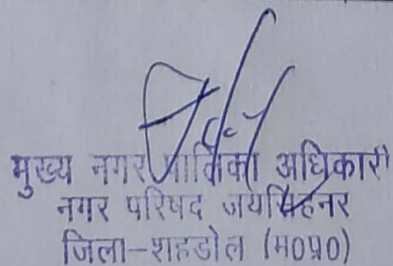 मुख्य नगर पालिका अधिकारी
नगर परिषद जयसिंहनर
जिला-शहडोल (म0प्र0)